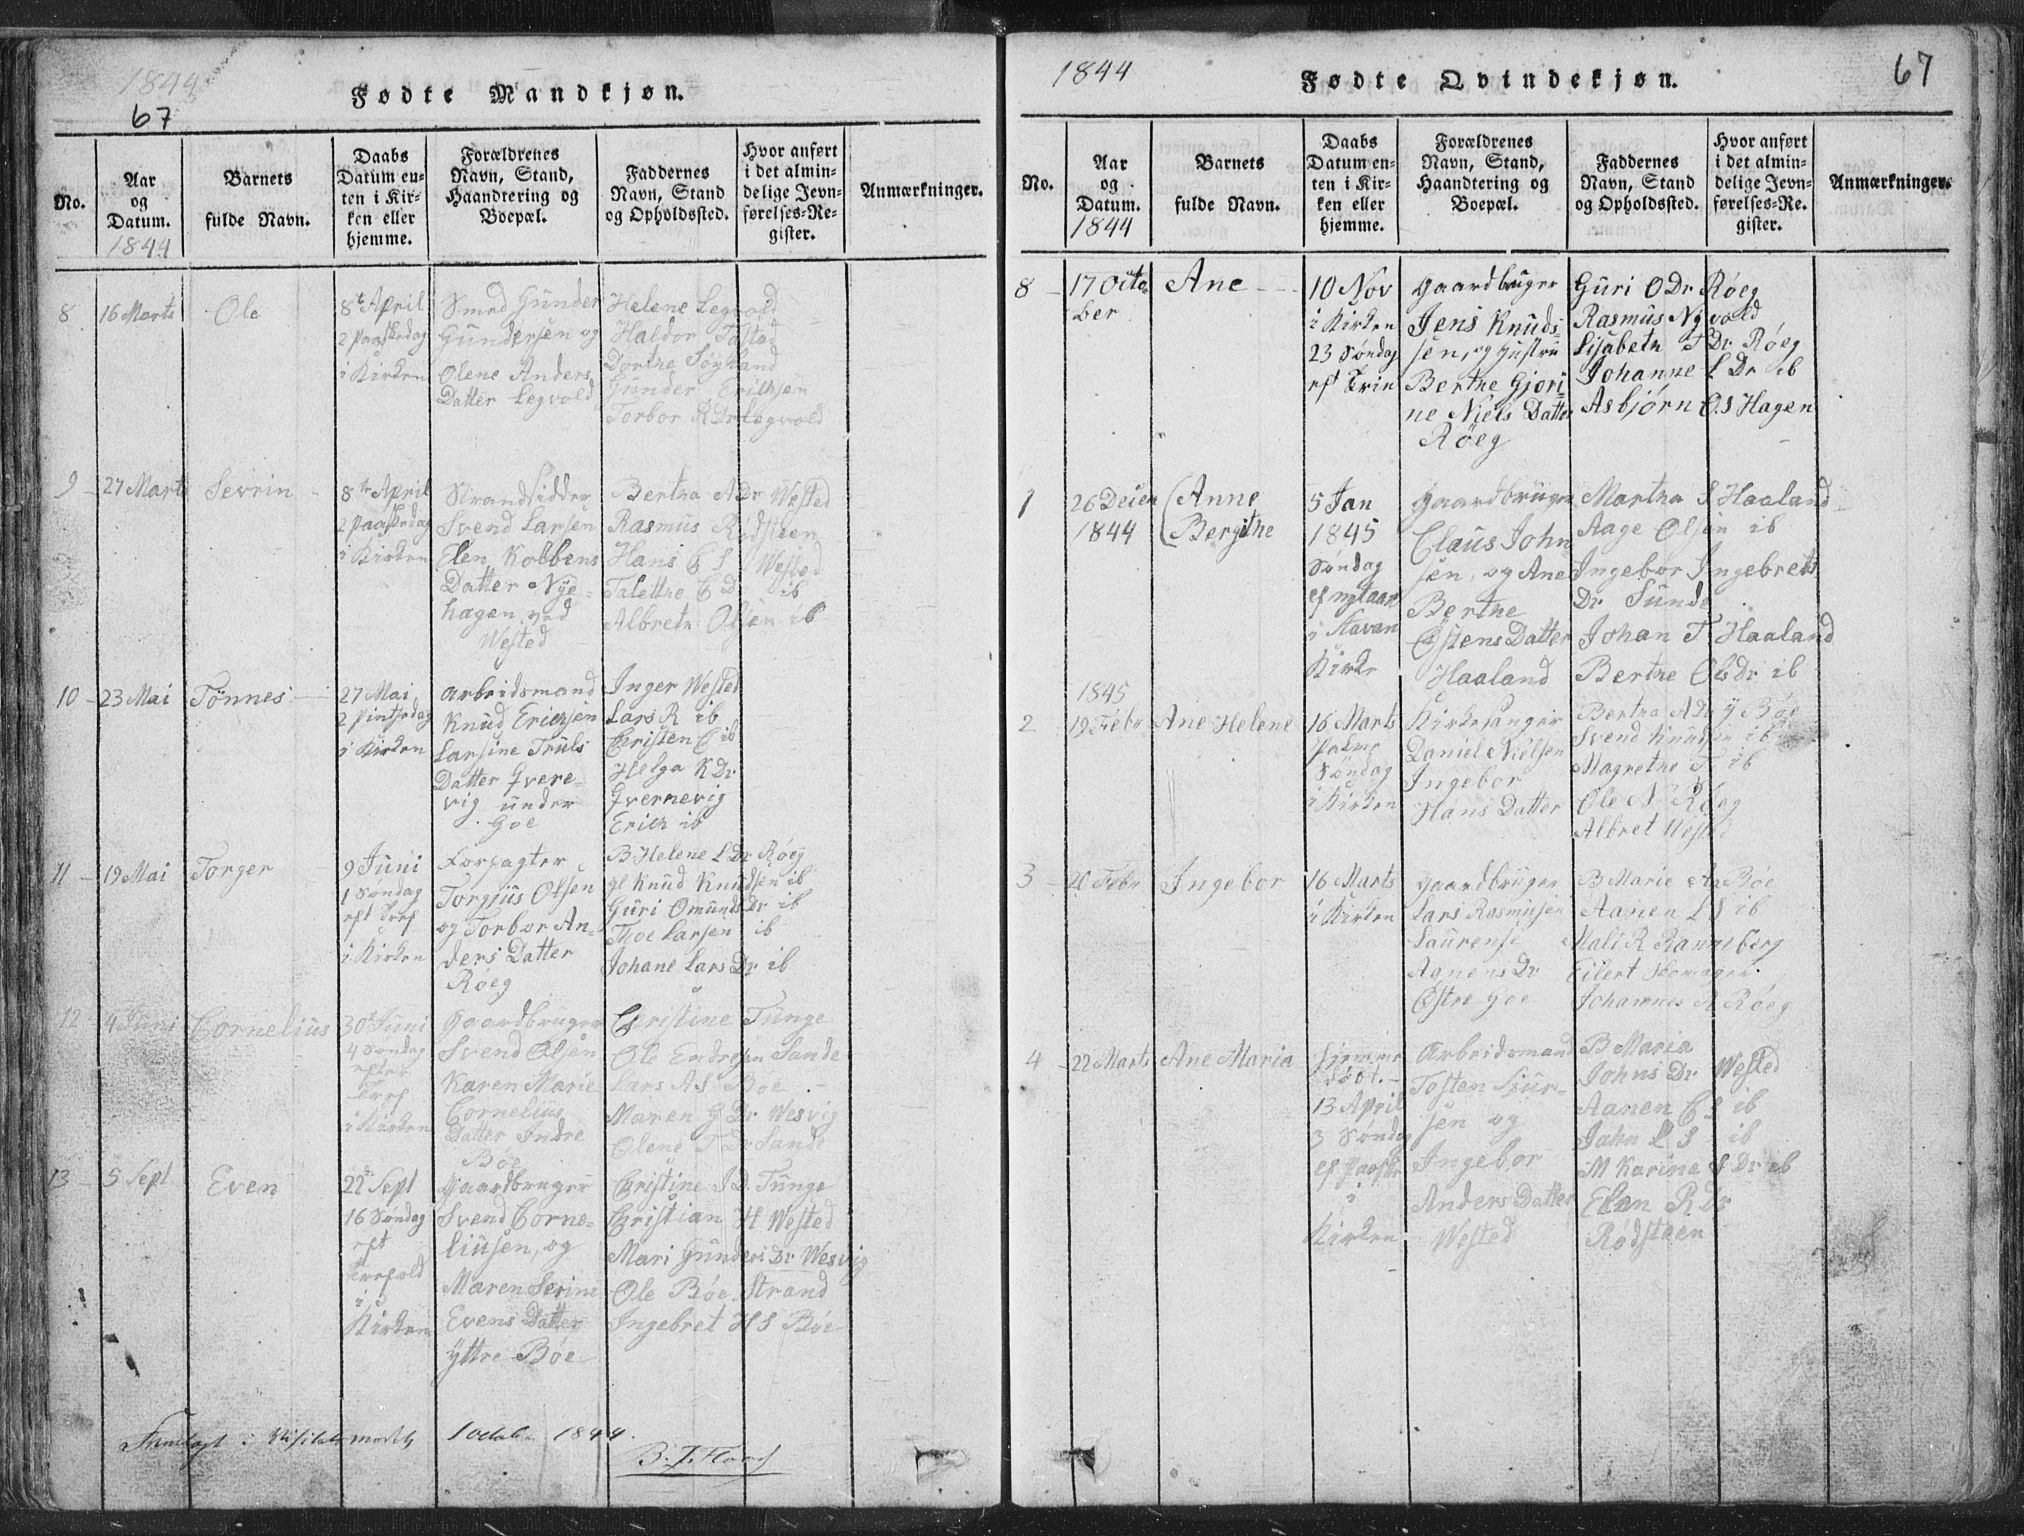 1844
67
Fødte Mandkjøn.
No.
Aar
og
Datum.
1844
Barnets
fulde Navn.
Daabs
Datum en-
ten i Kir-
ken eller
hjemme.
Forældrenes
Navn, Stand,
Haandtering og
Boepæl.
Faddernes
Navn, Stand
og Opholdssted.
Hvor anført
i det almin-
delige Jevn-
førelses-Re-
gister.
Anmærkninger.
8
16 Marts
Ole
8de April
2 Paaskedag
i Kirken
Smed Gunder
Gundersen og
Olene Anders
Datter Legvold
Helene Legvold
Haldor Tastad
Dorthe Søyland
Gunder Erichsen
Torbor R Dr Legvold
9
27 Marts
Sevrin
8de April
2 Paaskedag
i Kirken
Strandsidder
Svend Larsen
Elen Kolbens
Datter Nye-
hagen ved
Wested
Bertha A Dr Wested
Rasmus Rødsteen
Hans E S Wested
Talettre E D ib
Albreth Olsen ib
10
23 Mai
Tønnes
27 Mai
2 Pintsedag
i Kirken
Arbeidsmand
Knud Erichsen
Larsine Truls
Datter Qverne-
vig under
Goe
Inger Wested
Lars R ib
Christen E ib
Helga K Dr
Qvernevig
Erich ib
11
19 Mai
Torger
9 Juni
1 Søndag
eft Tref
i Kirken
Forpagter
Torgius Olsen
og Torbor An-
ders Datter
Røeg
B Helene L Dr Røeg
gl Knud Knudsen ib
Guri Omunds Dr ib
Thoe Larsen ib
Johane Lars Dr ib
12
4 Juni
Cornelius
30 Juni
4 Søndag
efter
Tref
i Kirken
Gaardbruger
Svend Olsen
Karen Marie
Cornelius
Datter Indre
Boe
Christine Tunge
Ole Endresen Sande
Lars A S Boe
Maren G Dr Wesvig
Olene T Dr Sande
13
5 Sept
Even
22 Sept
16 Søndag
eft
Trefold
i
Kirken
Gaardbruger
Svend Corne-
liusen, og
Maren Serine
Evens Datter
yttre Bøe
Christine J D Tunge
Christian H Wested
Mari Gunders Dr Wesvig
Ole Bøe Strand
Ingebret H S Bøe
Fremlagt i Visitatsmødet 1 octob. 1844.
1844
67
Fødte Qvindekjøn.
No.
Aar
og
Datum.
1844
Barnets
fulde Navn.
Daabs
Datum en-
ten i Kir-
ken eller
hjemme.
Forældrenes
Navn, Stand,
Haandtering og
Boepæl.
Faddernes
Navn, Stand
og Opholdssted.
Hvor anført
i det almin-
delige Jevn-
førelses-Re-
gister.
Anmærkninger.
8
17 Octo
ber
Ane
10 Nov
i Kirken
23 Søndag
eft Trin
Gaardbruger
Jens Knuds-
sen, og Hustru
Berthe Gjori-
ne Niels Datter
Røeg
Guri O Dr Røeg
Rasmus Nyvold
Lisabeth T Dr Røeg
Johanne L Dr ib
Asbjørn O S Hagen
1
26 Decem
1844
Anne
Bergithe
5 Jan
1845
Søndag
ef nytaar
i Stavan
Kirke
Gaardbruger
Claus John
sen, og Ane
Berthe
Østens Datter
Haaland
Martha S Haaland
Aage Olsen ib
Ingebor Ingebrets
Dr Sunde
Johan T Haaland
Berthe Ols Dr ib
1845
2
19 Febr
Ane Helene
16 Marts
Palme
Søndag
i Kirken
Kirkesanger
Daniel Nielsen
Ingebor
Hans Datter
Bertha A Dr y Bøe
Svend Knudsen ib
Magrethe T ib
Ole N Røeg
Albret Wested
3
20 Febr
Ingebor
16 Marts
i Kirken
Gaardbruger
Lars Rasmusen
Laurense
Aanens Dr
Østre Goe
B Marie Aa Bøe
Aanen L S ib
Mali R Ranneberg
Eilert
Johannes A Røeg
4
22 Marts
Ane Maria
hjemme
døbt.
13 April
3 Søndag
ef Paaske
i
Kirken
Arbeidsmand
Tosten Siur-
sen og
Ingebor
Anders Datter
Wested
B Maria
Johns Dr Wested
Aanen E S ib
Jahn L S ib
M Karina S Dr ib
Elen R Dr
Rødsteen